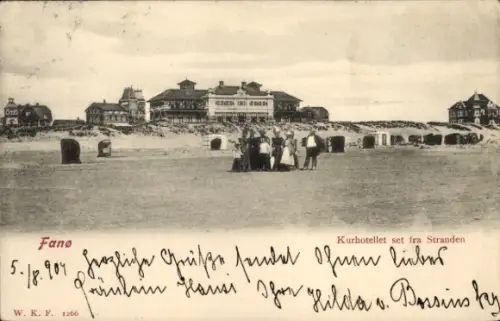 Fanø
Kurhotellet set fra Stranden
5./8. 904 Herzliche Grüße sendet Ihnen liebes
Fräulein Hansi Ihre Hilda v.
W. K. F. 1266